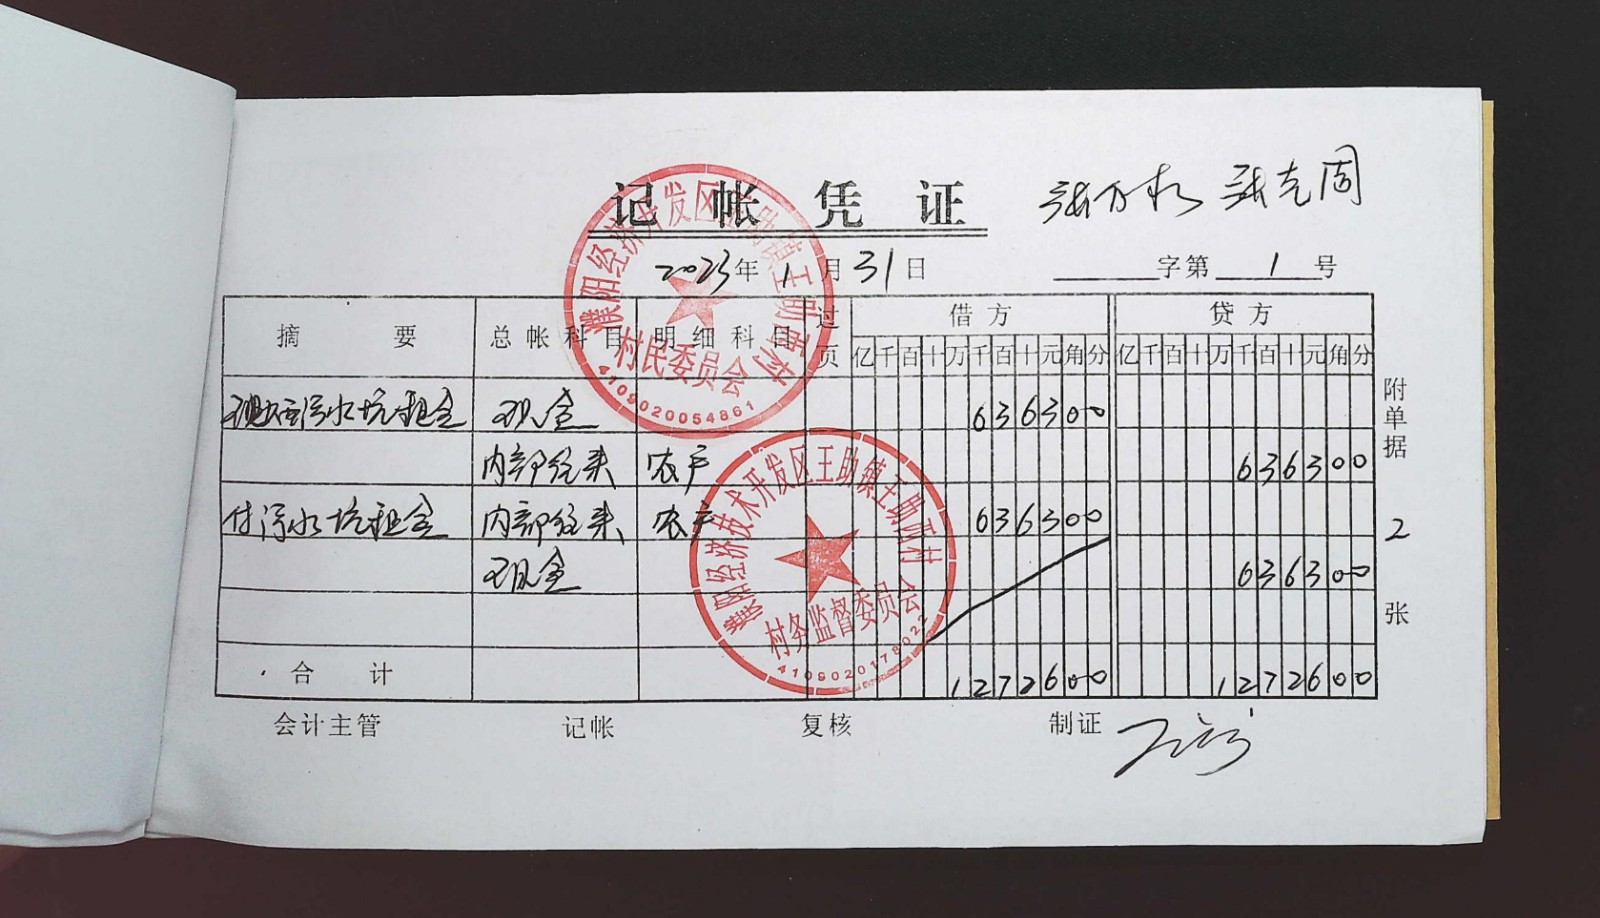 记帐凭证
张克周
2023年1月31日
字第 1 号
摘要 总帐科目 明细科目 过页 借方 贷方
亿千百十万千百十元角分 亿千百十万千百十元角分
污水坑租金 现金 636300
内部往来 农户 636300
付污水坑租金 内部往来 农户 636300
现金 636300
合计 1272600 1272600
附单据 2 张
会计主管 记帐 复核 制证
濮阳经济开发区王助镇王助西村
村民委员会
4109020054861
濮阳经济技术开发区王助镇王助西村
村务监督委员会
4109020178022